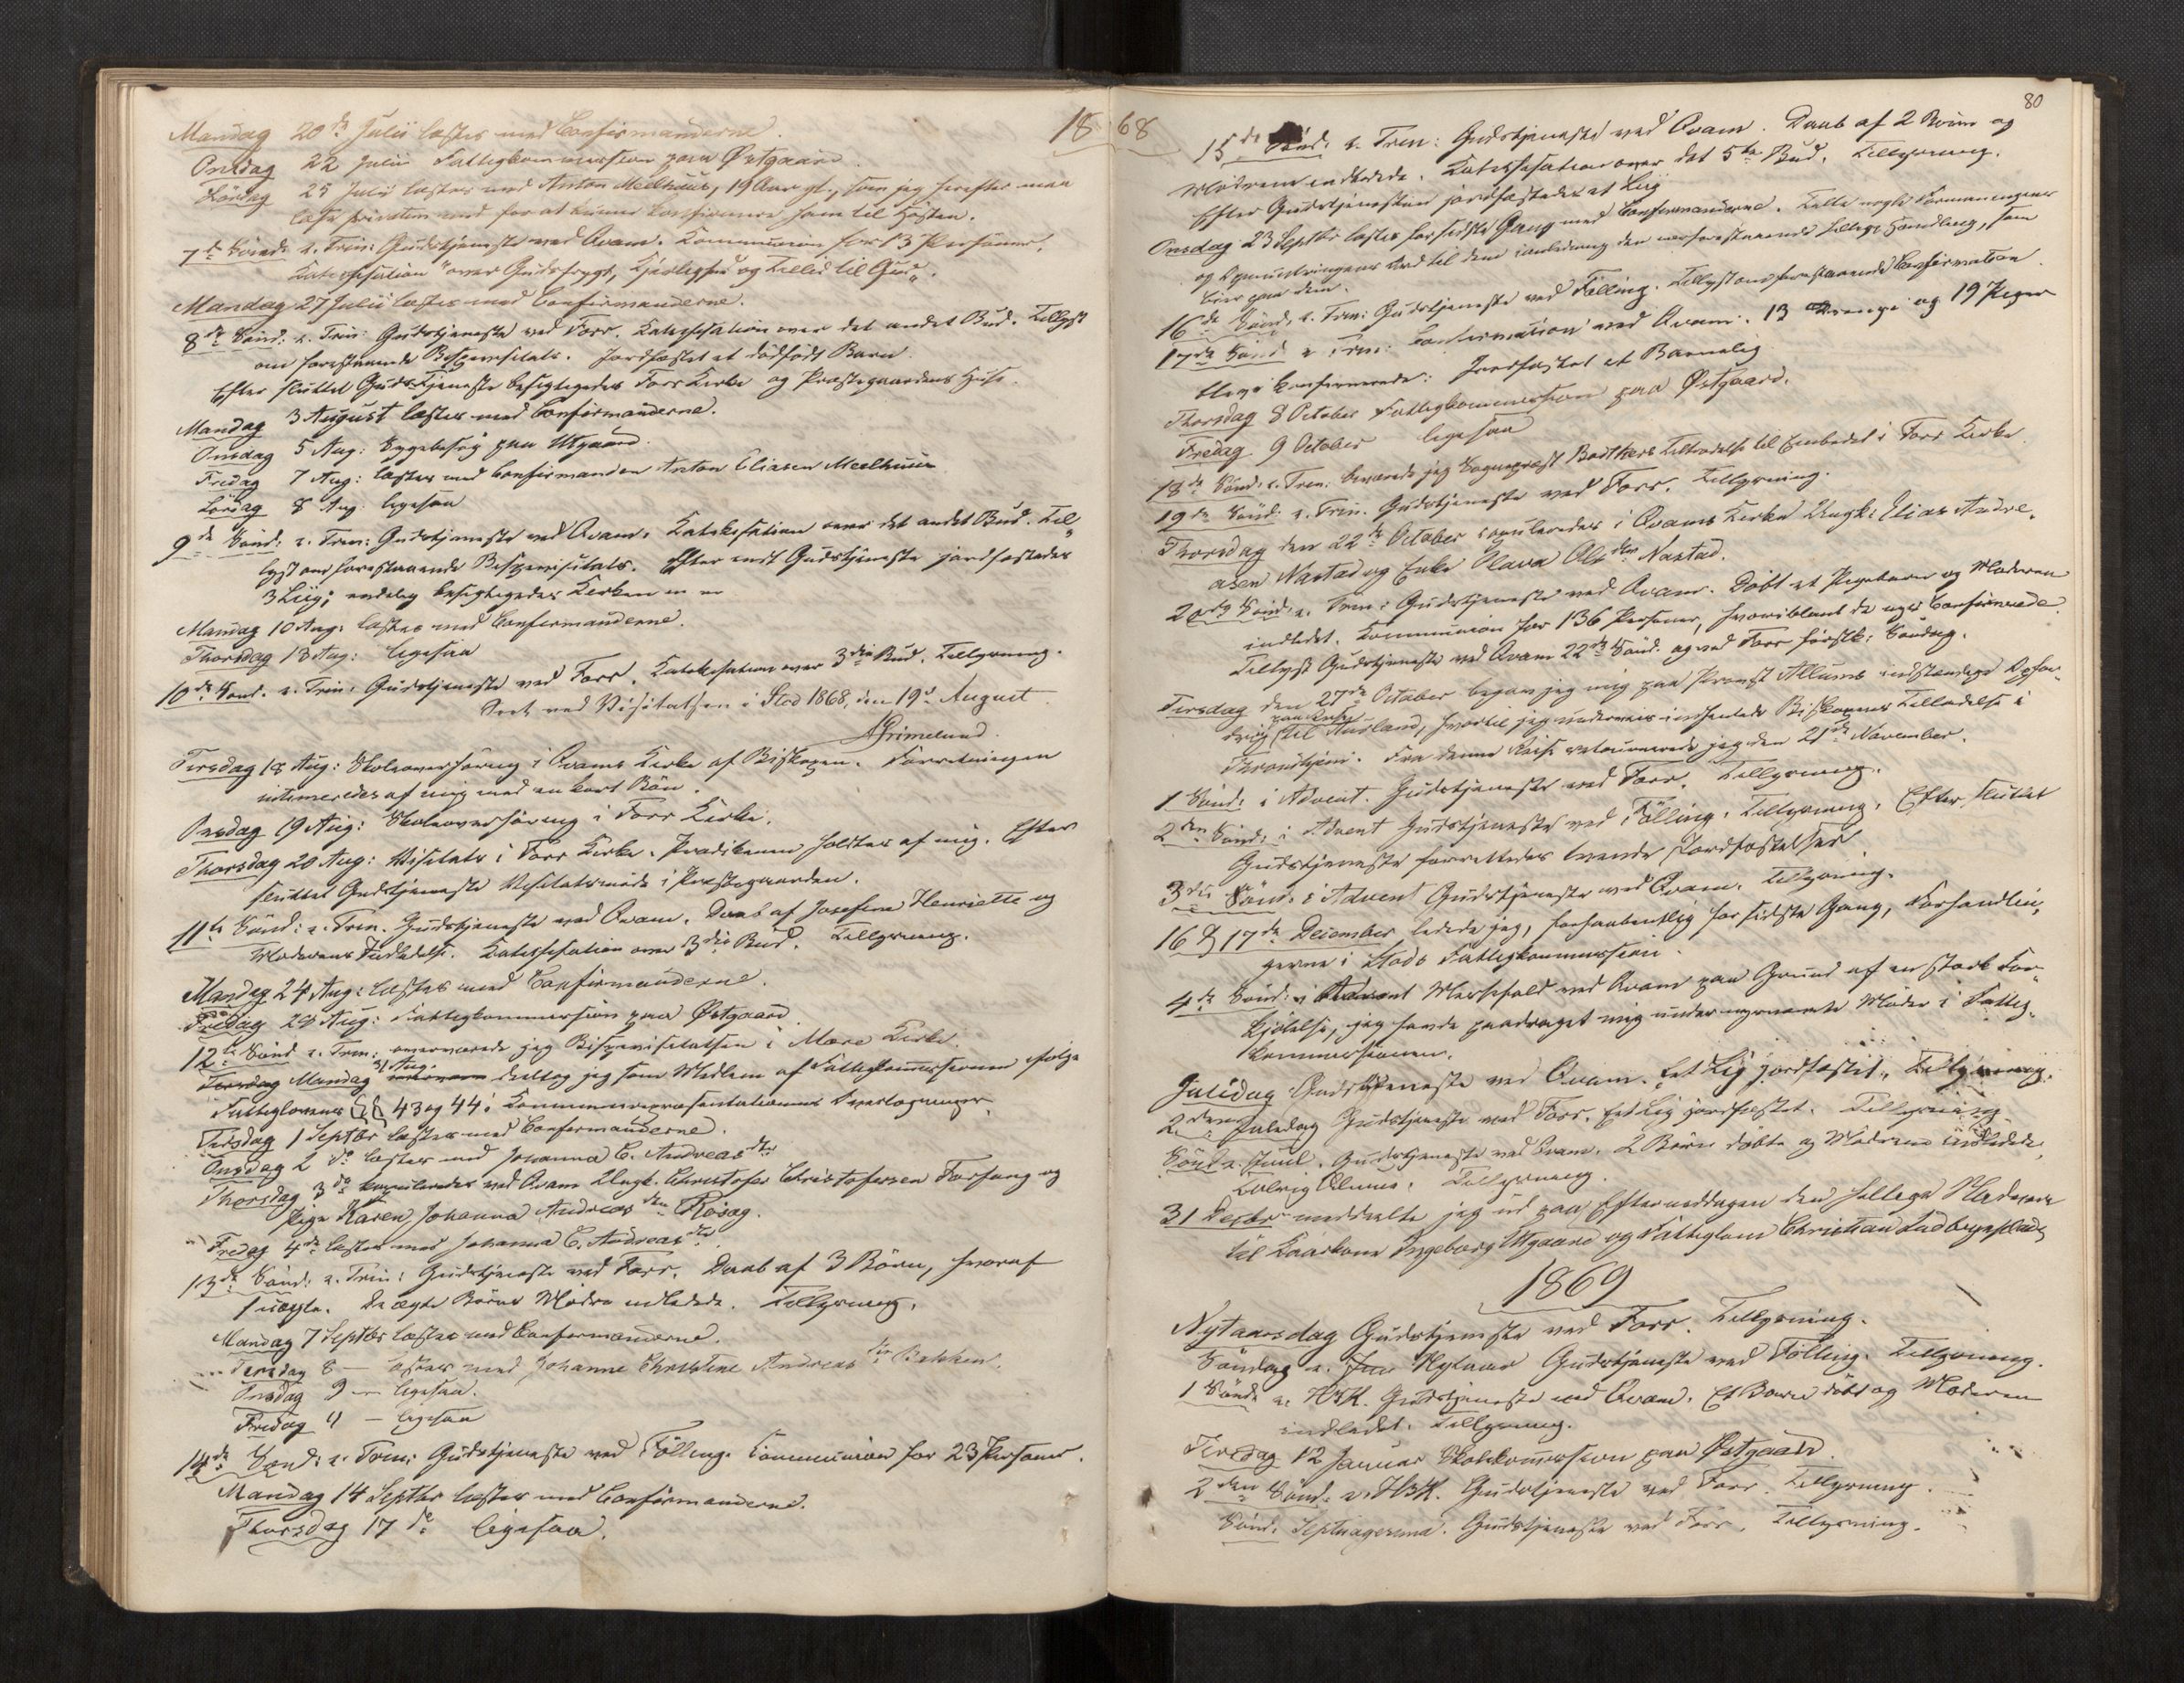 1868
Mandag 20de Julii læstes med Confirmanderne.
Onsdag 22 Julii Fattigkommission paa Østgaard.
Lördag 25 Julii læstes med Anton Meelhuus, 19 Aar gl., som jeg herefter maa
læse privatim med for at kunne konfirmere ham til Hösten.
7de Sönd: e. Trin: Gudstjeneste ved Qvam. Kommunion for 13 Personer.
Katechisation over Gudsfrygt, Kjærlighed og Tillid til Gud.
Mandag 27 Julii læstes med Confirmanderne.
8de Sönd: e. Trin: Gudstjeneste ved Forr. Katechisation over det andet Bud. Tillyst
om forestaaende Bispevisitats. Jordfæstet et dödfödt Barn.
Efter sluttet Gudstjeneste besigtigedes Forr Kirke og Præstegaardens Huse.
Mandag 3 August læstes med Confirmanderne.
Onsdag 5 Aug: Sygebesög paa Utgaard.
Fredag 7 Aug: læstes med Confirmanden Anton Eliasen Meelhuus
Lördag 8 Aug. ligesaa
9de Sönd: e. Trin: Gudstjeneste ved Qvam. Katekisation over det andet Bud. Til-
lyst om forestaaende Bispevisitats. Efter endt Gudstjeneste jordfæstedes
3 Liig; endelig besigtigedes Kirken
Mandag 10 Aug: læstes med Confirmanderne.
Thorsdag 13 Aug: ligesaa
10de Sönd. e. Trin: Gudstjeneste ved Forr. Katekisation over 3die Bud. Tillysning.
Seet ved Visitatsen i Stod 1868, den 19de August
AGrimelund.
Tirsdag 18 Aug: Skoleoverhöring i Qvams Kirke af Biskopen. Forretningen
intimeredes af mig med en kort Bön.
Onsdag 19 Aug: Skoleoverhöring i Forr Kirke.
Thorsdag 20 Aug: Visitats i Forr Kirke. Prædikenen holdtes af mig. Efter
sluttet Gudstjeneste Visitatsmöde i Præstegaarden.
11te Sönd: e. Trin. Gudstjeneste ved Qvam. Daab af Josefine Henriette og
Moderens Indledelse. Katechisation over 3die Bud. Tillysning.
Mandag 24 Aug: læstes med Confirmanderne.
Fredag 28 Aug: Fattigkommission paa Østgaard
12te Sönd e. Trin: overværede jeg Bispevisitatsen i Mære Kirke.
Mandag 31 Aug. deeltog jeg som Medlem af Fattigkommissionen ifölge
Fattiglovens §§ 43 og 44 i Kommunerepræsentationens Overlægninger.
Tirsdag 1 Septbr læstes med Confirmanderne.
Onsdag 2 do læstes med Johanna C. Andreasdtr
Thorsdag 3de kopuleredes ved Qvam Ungk. Christofer Christofersen Forsang og
Pige Karen Johanna Andreasdtr Rösæg.
Fredag 4de læstes med Johanna C. Andreasdtr
13de Sönd: e. Trin: Gudstjeneste ved Forr. Daab af 3 Börn, hvoraf
1 uægte. De ægte Börns Mödre indledede. Tillysning.
Mandag 7 Septbr læstes med Confirmanderne.
Tirsdag 8 — læstes med Johanne Christine Andreasdtr Bakken.
Onsdag 9 — ligesaa.
Fredag 11 — ligesaa
14de Sönd: e. Trin: Gudstjeneste ved Fölling. Communion for 23 Personer.
Mandag 14 Septbr læstes med Confirmanderne.
Thorsdag 17de ligesaa.
80
15de Sönd: e. Trin: Gudstjeneste ved Qvam. Daab af 2 Börn og
Mödrene indledede. Katechisation over det 5te Bud. Tillysning.
Efter Gudstjenesten jordfæstedes et Liig
Onsdag 23 Septbr læstes for sidste Gang med Confirmanderne. Talte nogle Formaningens
og Opmuntringens Ord til dem i anledning den nærforestaaende hellige Handling, som
bier paa dem.
16de Sönd. e. Trin: Gudstjeneste ved Fölling. Tillyst om forestaaende Confirmation.
17de Sönd e Trin: Confirmation ved Qvam. 13 Drenge og 19 Piger
bleve konfirmerede. Jordfæstet et Barnelig
Thorsdag 8 October Fattigkommission paa Østgaard.
Fredag 9 October ligesaa
18de Sönd: e. Trin. bivaanede jeg Sogneprest Tiltrædelse til Embedet i Forr Kirke.
19de Sönd: e. Trin. Gudstjeneste ved Forr. Tillysning.
Thorsdag den 22de October copuleredes i Qvams Kirke Ungk. Elias Andre-
asen Nastad og Enke Olava Olsdtr Nastad.
20de Sönd: e. Trin: Gudstjeneste ved Qvam. Döbt et Pigebarn og Moderen
indledet. Kommunion for 136 Personer, hvoriblant de nys Confirmerede.
Tillyst Gudstjeneste ved Qvam 22de Sönd. og ved Forr förstk: Söndag.
Tirsdag den 27de October begav jeg mig paa Provst Allums indstændige Opfor-
dring paa Reise til Aurland, hvortil jeg underveis indhentede Biskopens Tilladelse i
Throndhjem. Fra denne Reise returnerede jeg den 21de November.
1 Sönd: i Advent. Gudstjeneste ved Forr. Tillysning.
2den Sönd: i Advent Gudstjeneste ved Fölling. Tillysning. Efter sluttet
Gudstjeneste forrettedes tvende Jordfæstelser
3die Sönd: i Advent Gudstjeneste ved Qvam. Tillysning.
16 & 17de December ledede jeg, forhaabentlig for sidste Gang, Forhandlin-
gerne i Stods Fattigkommission.
4de Sönd: i Advent Messefald ved Qvam paa Grund af en stærk For-
kjölelse, jeg havde paadraget mig under nysnævnte Möder i Fattig-
kommissionen.
Juledag Gudstjeneste ved Qvam. Eet Lig jordfæstet. Tillysning.
2den Juledag Gudstjeneste ved Forr. Eet Lig jordfæstet. Tillysning.
Sönd e. Juul. Gudstjeneste ved Qvam. 2 Börn döbte og Mödrene indledede,
Tillysning.
31 Decbr meddeelte jeg ud paa Eftermiddagen den hellige Nadvere
til Kaarkone Ingeborg Utgaard og Fattiglem Christian Ludbrynsplads
1869
Nytaarsdag Gudstjeneste ved Forr. Tillysning.
Söndag e. Nytaar Gudstjeneste ved Fölling. Tillysning.
1 Sönd e. H3K. Gudstjeneste ved Qvam. Et Barn döbt og Moderen
indledet. Tillysning.
Tirsdag 12 Januar Skolekommission paa Østgaard.
2den Sönd. e. H3K. Gudstjeneste ved Forr. Tillysning.
Sönd. Septuagesima. Gudstjeneste ved Forr. Tillysning.